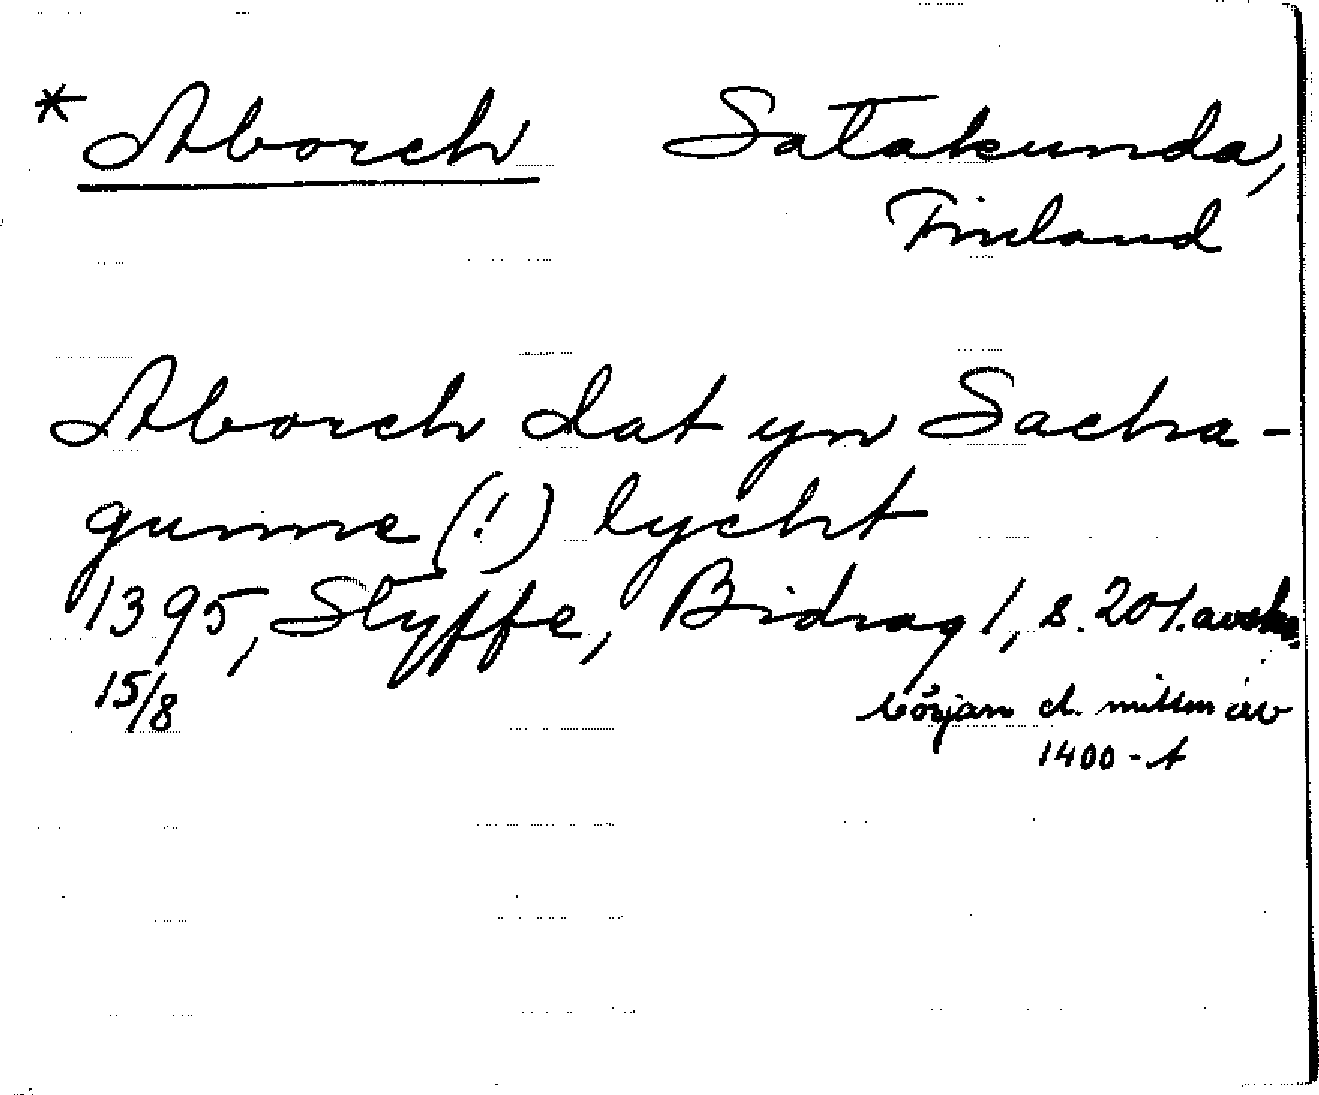 * Aborch Satakunda,
Finland
Aborch dat yn Sacha-
gunne (!) lycht
1395, Styffe, Bidrag 1, s. 201. avskr.
15/8
början el. mitten av
1400-t